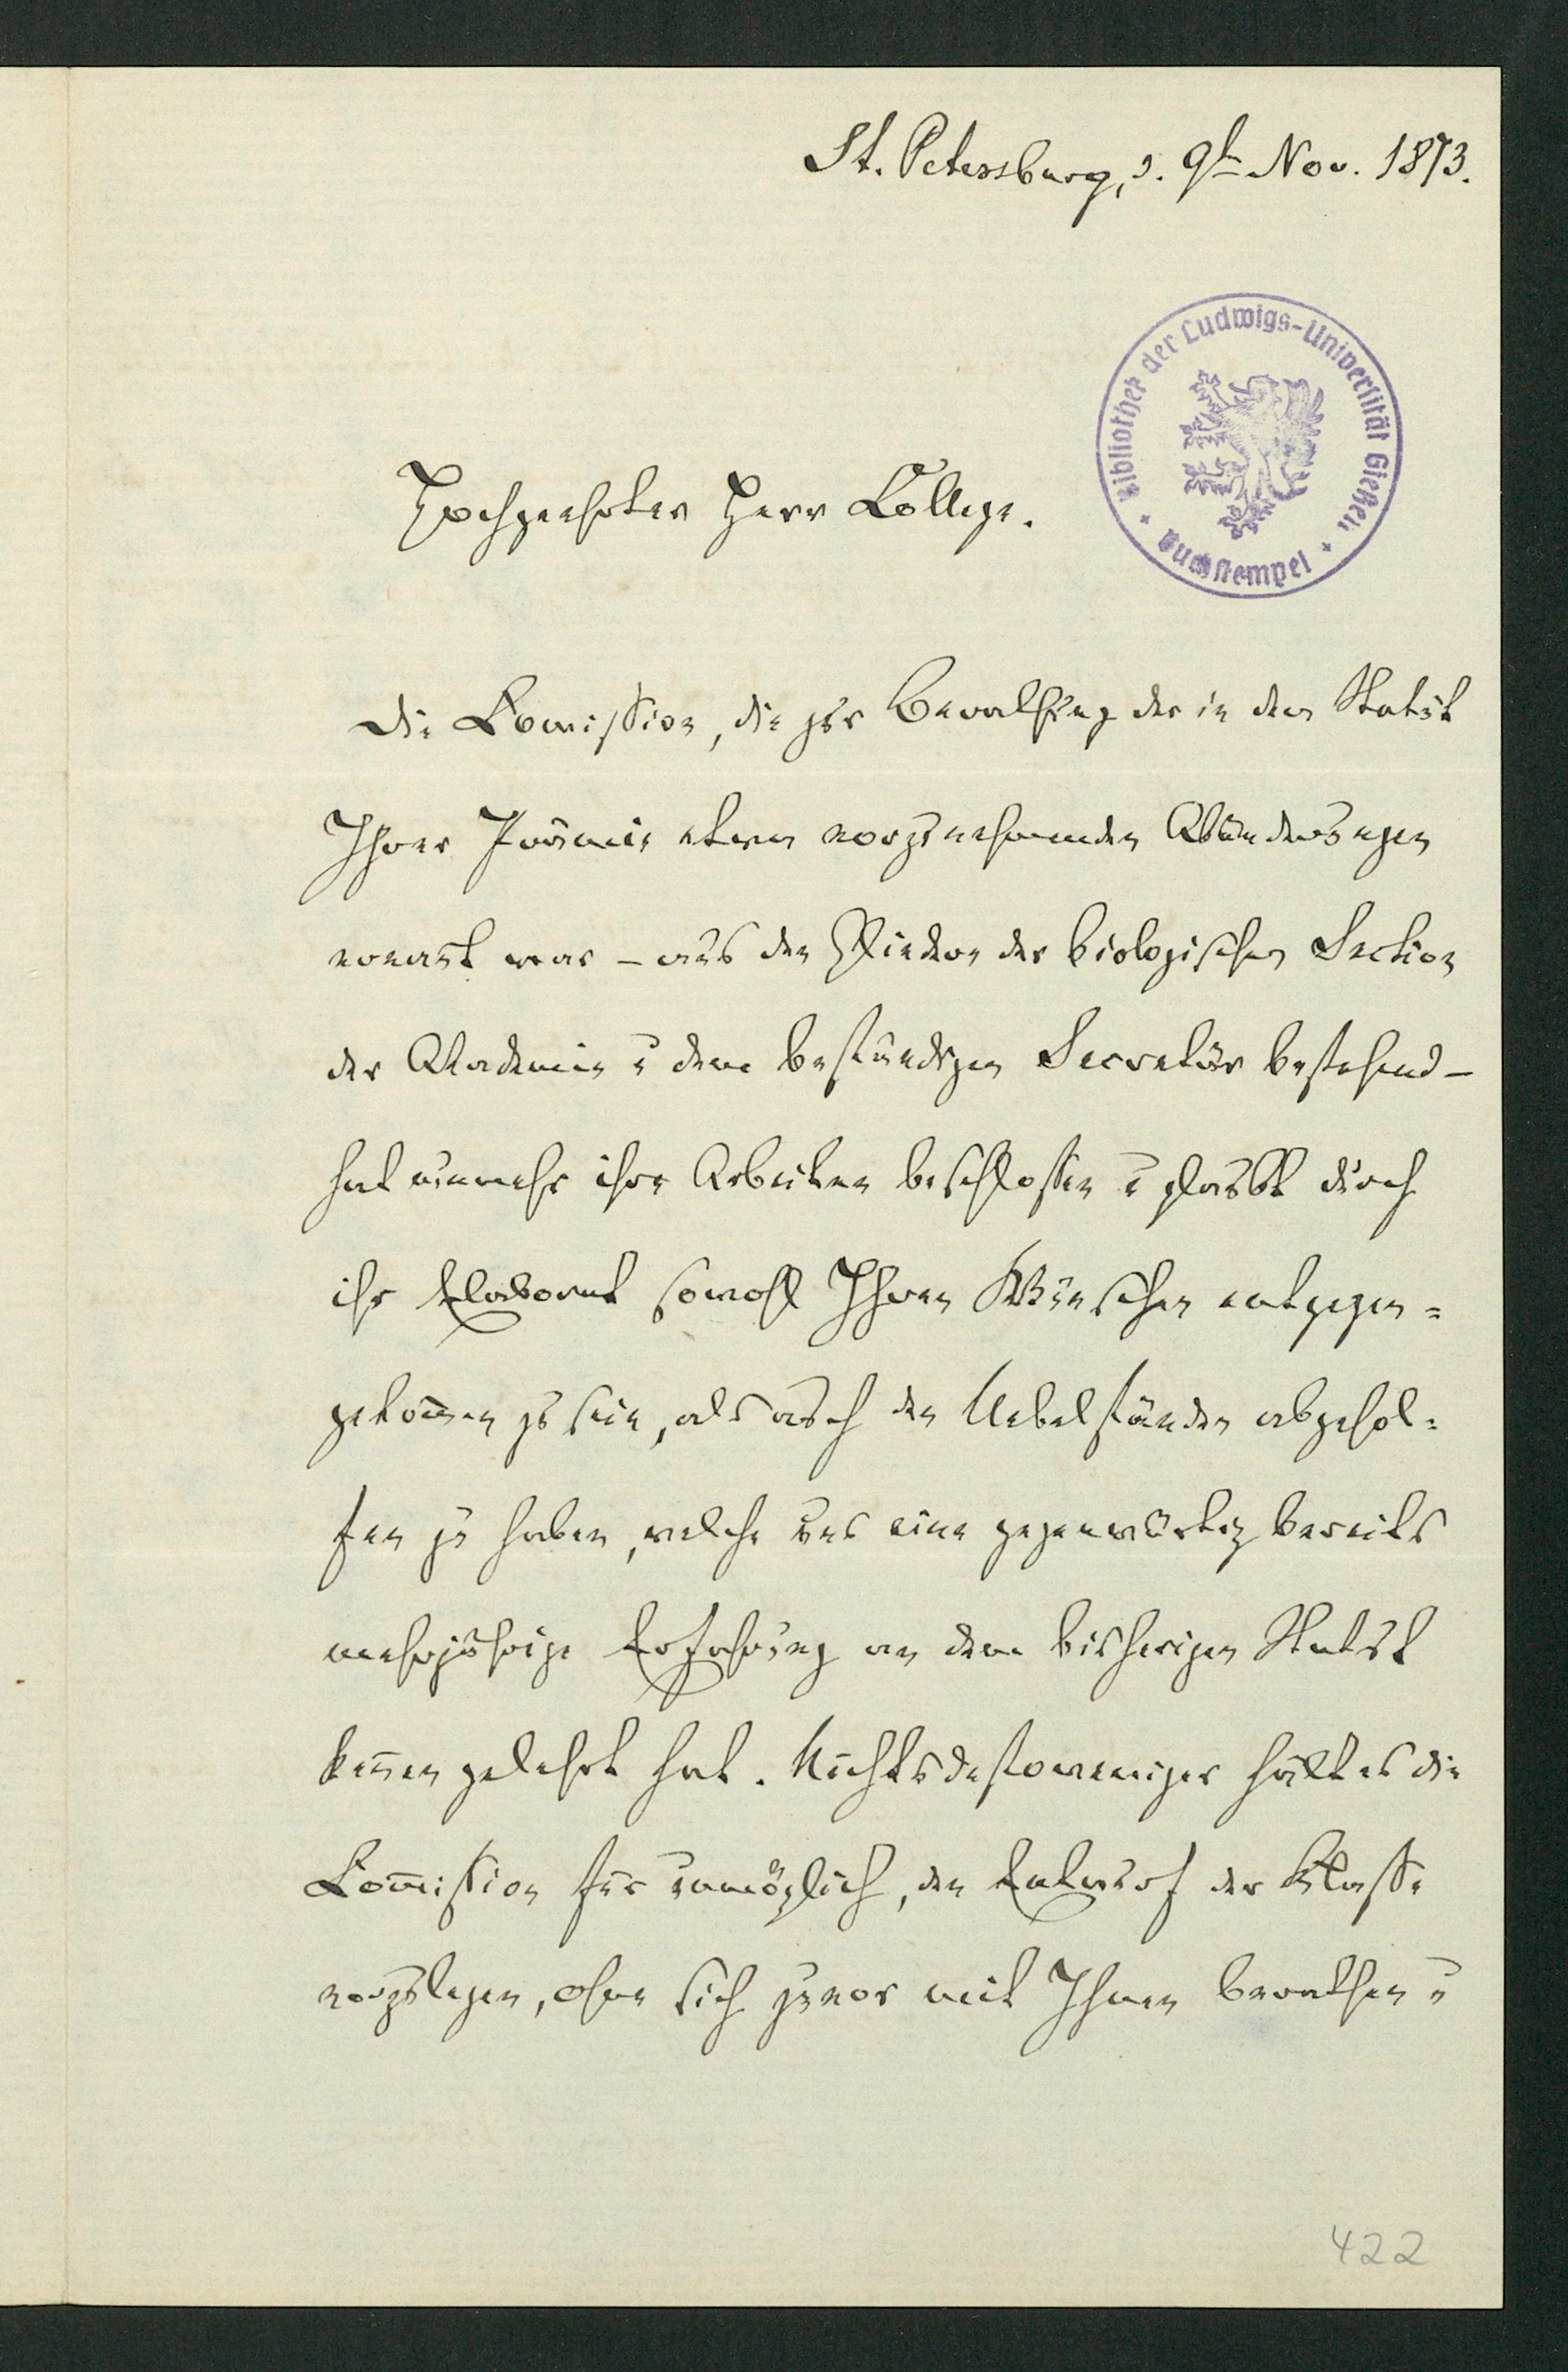 St. Petersburg, d. 9t Nov. 1873.
Bibliothek der Ludwigs-Universität Gießen
Buchstempel
Hochgeehrter Herr College.
Die Comission, die zur Berathung der in dem Statut
Ihrer Prämie etwa vorzunehmenden Abänderungen
ernant war – aus den Gliedern der biologischen Section
der Akademie u dem beständigen Secretär bestehend –
hat nunmehr ihre Arbeiten beschlossen u glaubt durch
ihr Elaborat sowohl Ihren Wünschen entgegen=
gekom̅en zu sein, als auch den Uebelständen abgehol=
fen zu haben, welche uns eine gegenwärtig bereits
mehrjährige Erfahrung an dem bisherigen Statut
ken̅en gelehrt hat. Nichtsdestoweniger hält es die
Com̅ission für unmöglich, den Entwurf der Klasse
vorzulegen, ohne sich zuvor mit Ihnen berathen u
422